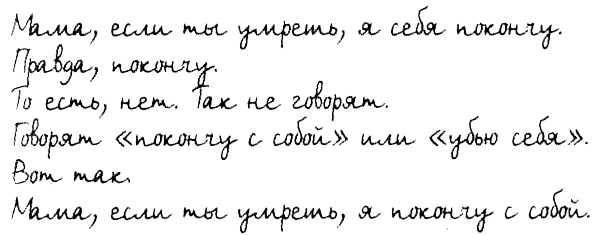 Мама, если ты умреть, я себя покончу.
Правда, покончу.
То есть, нет. Так не говорят.
Говорят «покончу с собой» или «убью себя».
Вот так.
Мама, если ты умреть, я покончу с собой.